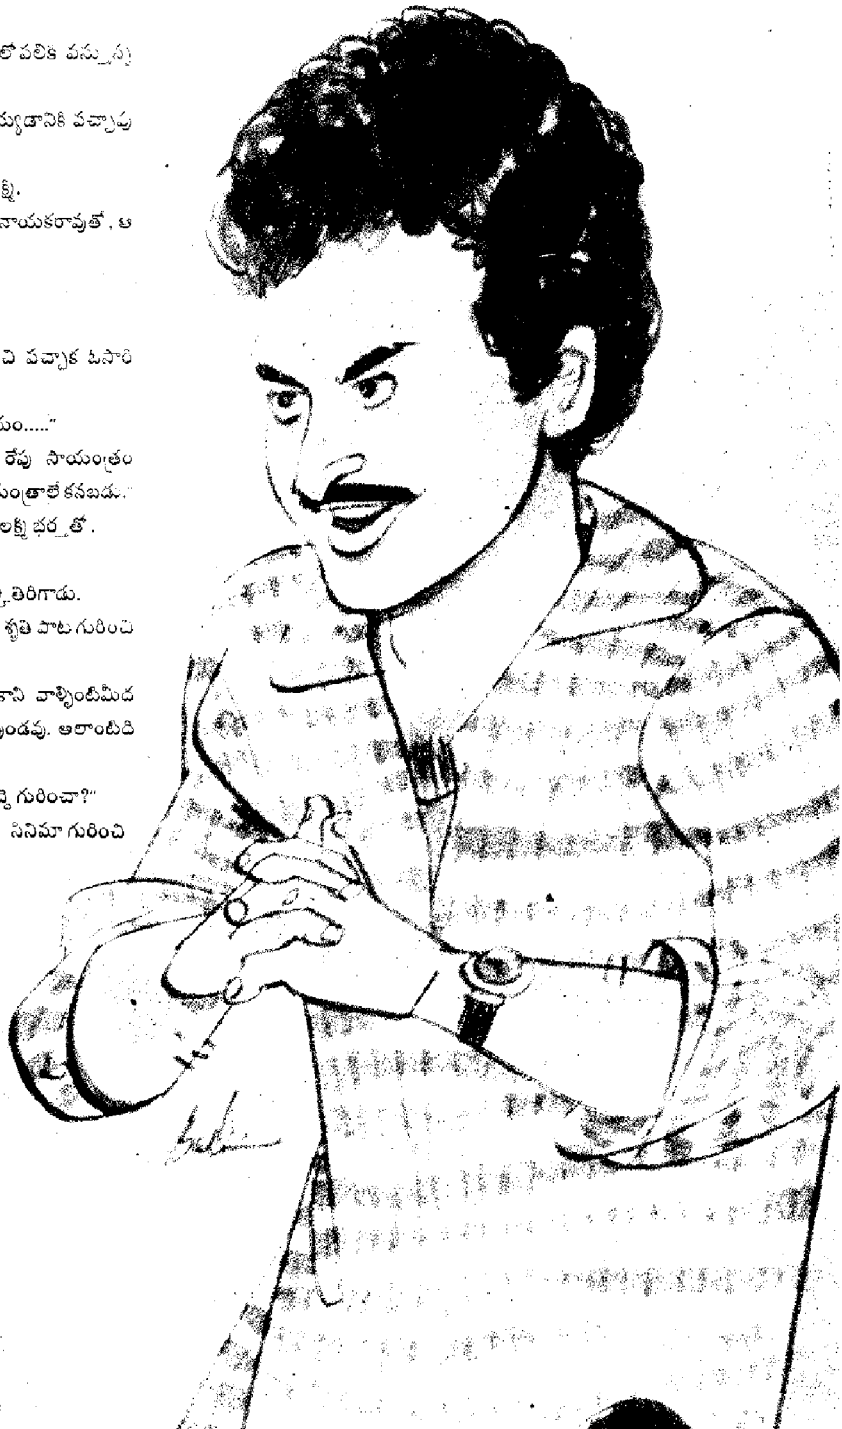 లోపలికి వస్తున్న
య్యడానికి వచ్చావు
క్ష్మి.
నాయకరావుతో, ఆ
చి వచ్చాక ఓసారి
యం....."
రేపు సాయంత్రం
మంత్రాలే కనబడు."
లక్ష్మి భర్తతో.
తిరిగాడు.
శృతి పాట గురించి
కాని వాళ్ళింటిమీద
వుండవు. అలాంటిది
గురించా?"
సినిమా గురించి